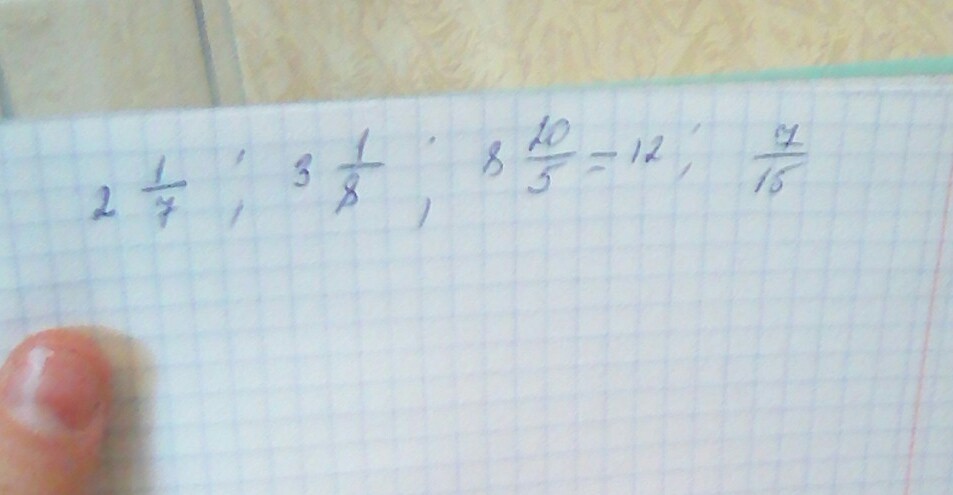 2 1/7 ; 3 1/8 ; 8 20/5 = 12 ; 7/15